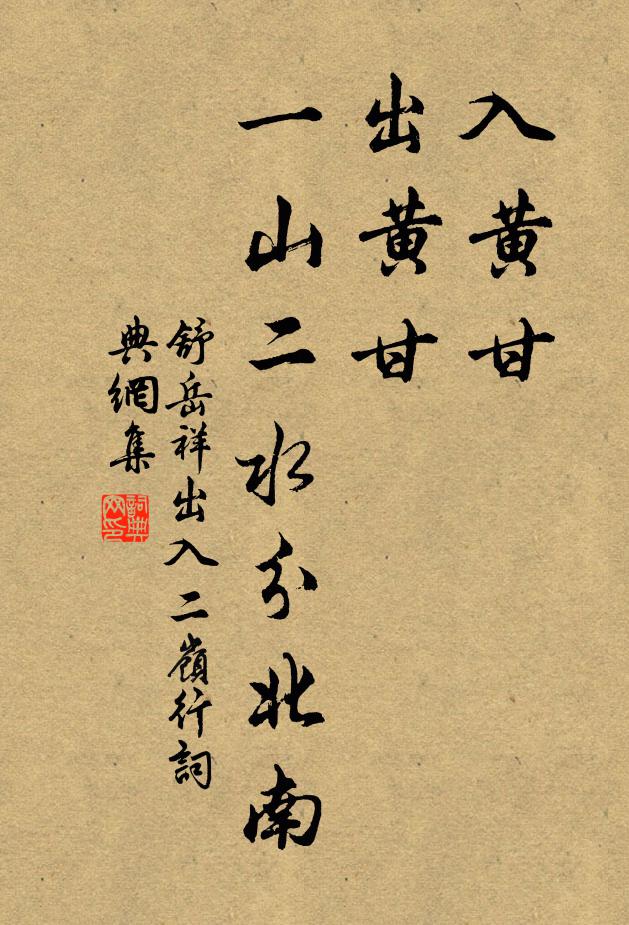 入黃甘
出黃甘
一山二水分北南
舒岳祥出入二嶺行詞
典網集
詞典
网印